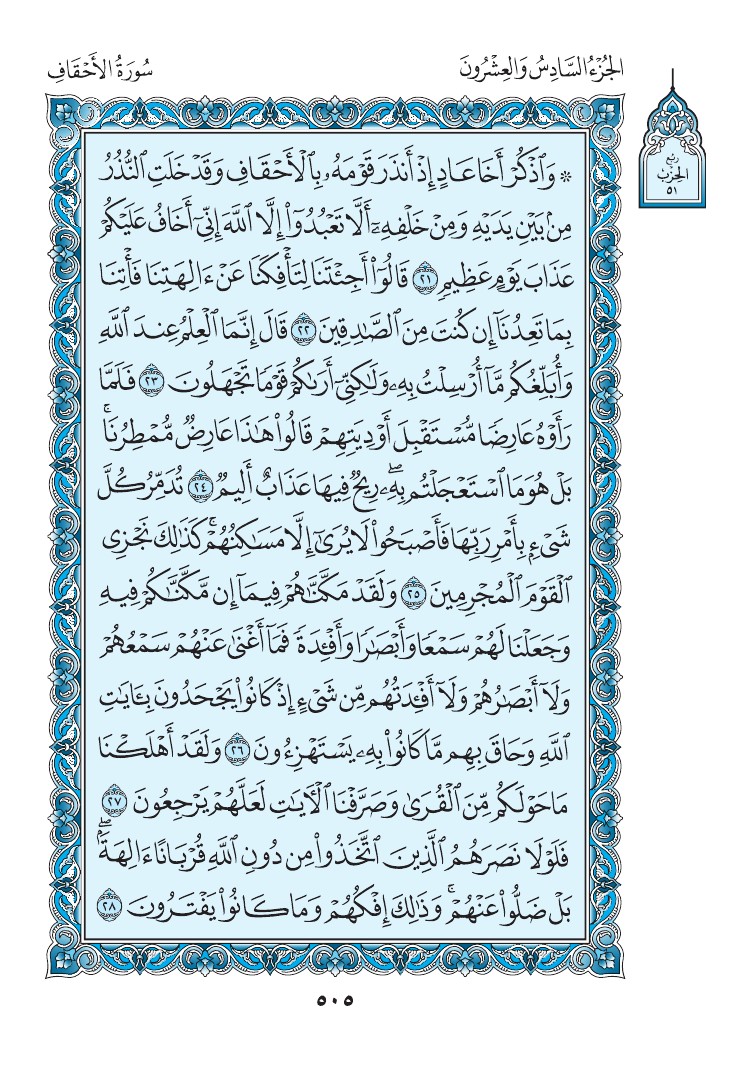 الجُزْءُ السَّادِسُ وَالعِشْرُونَ
سُورَةُ الأَحْقَافِ
ربع
الحزب
٥١
۞ وَٱذۡكُرۡ أَخَا عَادٍ إِذۡ أَنذَرَ قَوۡمَهُۥ بِٱلۡأَحۡقَافِ وَقَدۡ خَلَتِ ٱلنُّذُرُ
مِنۢ بَيۡنِ يَدَيۡهِ وَمِنۡ خَلۡفِهِۦٓ أَلَّا تَعۡبُدُوٓاْ إِلَّا ٱللَّهَ إِنِّيٓ أَخَافُ عَلَيۡكُمۡ
عَذَابَ يَوۡمٍ عَظِيمٖ ٢١ قَالُوٓاْ أَجِئۡتَنَا لِتَأۡفِكَنَا عَنۡ ءَالِهَتِنَا فَأۡتِنَا
بِمَا تَعِدُنَآ إِن كُنتَ مِنَ ٱلصَّٰدِقِينَ ٢٢ قَالَ إِنَّمَا ٱلۡعِلۡمُ عِندَ ٱللَّهِ
وَأُبَلِّغُكُم مَّآ أُرۡسِلۡتُ بِهِۦ وَلَٰكِنِّيٓ أَرَىٰكُمۡ قَوۡمٗا تَجۡهَلُونَ ٢٣ فَلَمَّا
رَأَوۡهُ عَارِضٗا مُّسۡتَقۡبِلَ أَوۡدِيَتِهِمۡ قَالُواْ هَٰذَا عَارِضٞ مُّمۡطِرُنَاۚ
بَلۡ هُوَ مَا ٱسۡتَعۡجَلۡتُم بِهِۦۖ رِيحٞ فِيهَا عَذَابٌ أَلِيمٞ ٢٤ تُدَمِّرُ كُلَّ
شَيۡءِۭ بِأَمۡرِ رَبِّهَا فَأَصۡبَحُواْ لَا يُرَىٰٓ إِلَّا مَسَٰكِنُهُمۡۚ كَذَٰلِكَ نَجۡزِي
ٱلۡقَوۡمَ ٱلۡمُجۡرِمِينَ ٢٥ وَلَقَدۡ مَكَّنَّٰهُمۡ فِيمَآ إِن مَّكَّنَّٰكُمۡ فِيهِ
وَجَعَلۡنَا لَهُمۡ سَمۡعٗا وَأَبۡصَٰرٗا وَأَفۡـِٔدَةٗ فَمَآ أَغۡنَىٰ عَنۡهُمۡ سَمۡعُهُمۡ
وَلَآ أَبۡصَٰرُهُمۡ وَلَآ أَفۡـِٔدَتُهُم مِّن شَيۡءٍ إِذۡ كَانُواْ يَجۡحَدُونَ بِـَٔايَٰتِ
ٱللَّهِ وَحَاقَ بِهِم مَّا كَانُواْ بِهِۦ يَسۡتَهۡزِءُونَ ٢٦ وَلَقَدۡ أَهۡلَكۡنَا
مَا حَوۡلَكُم مِّنَ ٱلۡقُرَىٰ وَصَرَّفۡنَا ٱلۡأٓيَٰتِ لَعَلَّهُمۡ يَرۡجِعُونَ ٢٧
فَلَوۡلَا نَصَرَهُمُ ٱلَّذِينَ ٱتَّخَذُواْ مِن دُونِ ٱللَّهِ قُرۡبَانًا ءَالِهَةَۢۖ
بَلۡ ضَلُّواْ عَنۡهُمۡۚ وَذَٰلِكَ إِفۡكُهُمۡ وَمَا كَانُواْ يَفۡتَرُونَ ٢٨
٥٠٥